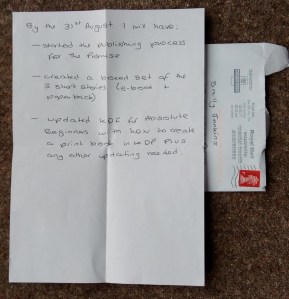 By the 31st August I will have:
- started the publishing process
for The Promise
- created a boxed set of the
3 short stories (e-book +
paperback)
- updated KDP for Absolute
Beginners with how to create
a print book in KDP PLUS
any other updating needed.
Sally Jenkins
Royal Mail